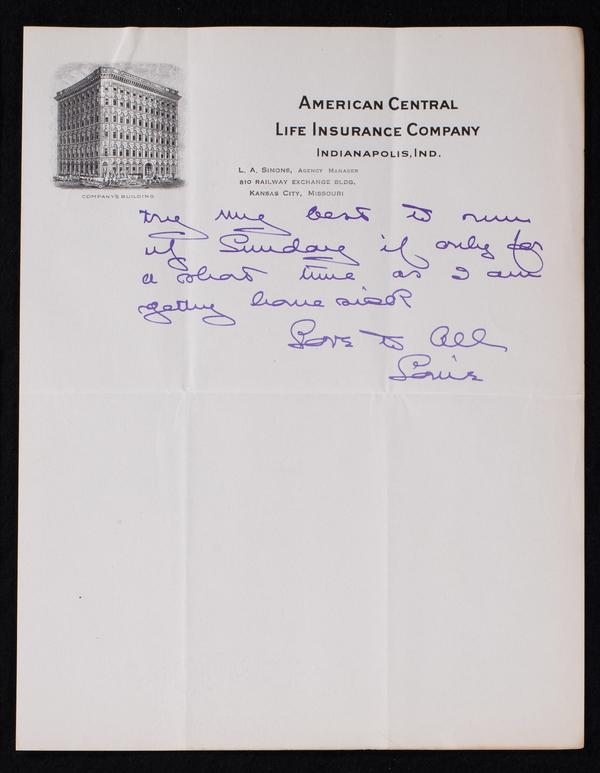 AMERICAN CENTRAL
LIFE INSURANCE COMPANY
INDIANAPOLIS, IND.
L. A. SIMONS, AGENCY MANAGER
810 RAILWAY EXCHANGE BLDG.
KANSAS CITY, MISSOURI
COMPANY'S BUILDING
try my best to run
up Sunday if only for
a short time as I am
getting home sick
Love to All
Louis